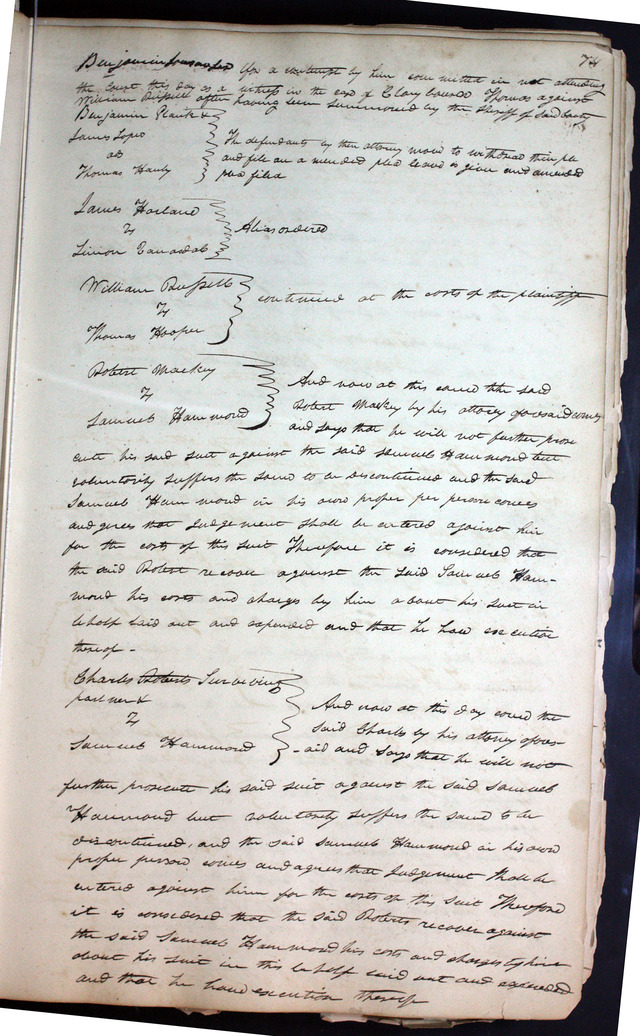 74
Benjamin for a contempt by him committed in not attending
the court this day as a witness in the case of Thomas against
William Bissell after having been summoned by the Sheriff of said County
Benjamin &
James Lopes
as
Thomas Hanly
The defendants by their attorney move to withdraw their plea
and file an amended plea leave is given and amended
plea filed
James Harland
vs
Simon
Alias ordered
William Russell
vs
Thomas Hooper
continued at the costs of the plaintiff
Robert Mackey
vs
Samuel Hammond
And now at this came the said
Robert Mackey by his attorney aforesaid comes
and says that he will not further prose
cute his said suit against the said Samuel Hammond but
voluntarily suffers the same to be discontinued and the said
Samuel Hammond in his own proper per person comes
and agrees that Judgement shall be entered against him
for the costs of this suit Therefore it is considered that
the said Robert recover against the said Samuel Ham-
mond his costs and charges by him about his suit in
behalf laid out and expended and that he have execution
thereof -
Charles Roberts Surviving
partner &
vs
Samuel Hammond
And now at this day comes the
said Charles by his attorney afores
aid and says that he will not
further prosecute his said suit against the said Samuel
Hammond but voluntarily suffers the same to be
discontinued, and the said Samuel Hammond in his own
proper person comes and agrees that Judgement shall be
entered against him for the costs of this suit Therefore
it is considered that the said Roberts recover against
the said Samuel Hammond his costs and charges by him
about his suit in this behalf laid out and expended
and that he have execution thereof